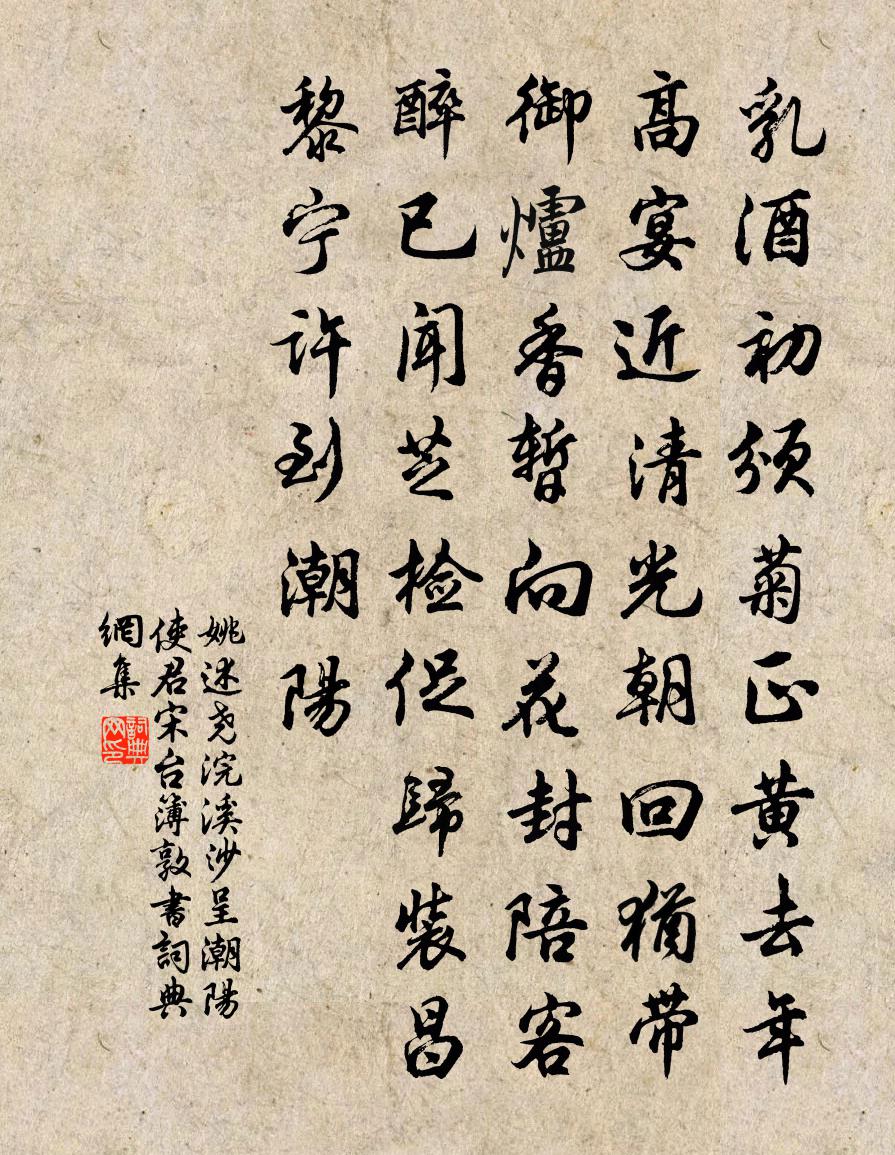 乳酒初頒菊正黄去年
高宴近清光朝回猶帶
御爐香暫向花封陪客
醉已闻芝檢促歸裝昌
黎宁許到潮陽
姚述尧浣溪沙呈潮陽
使君宋台簿敦書詞典
網集
詞典网印